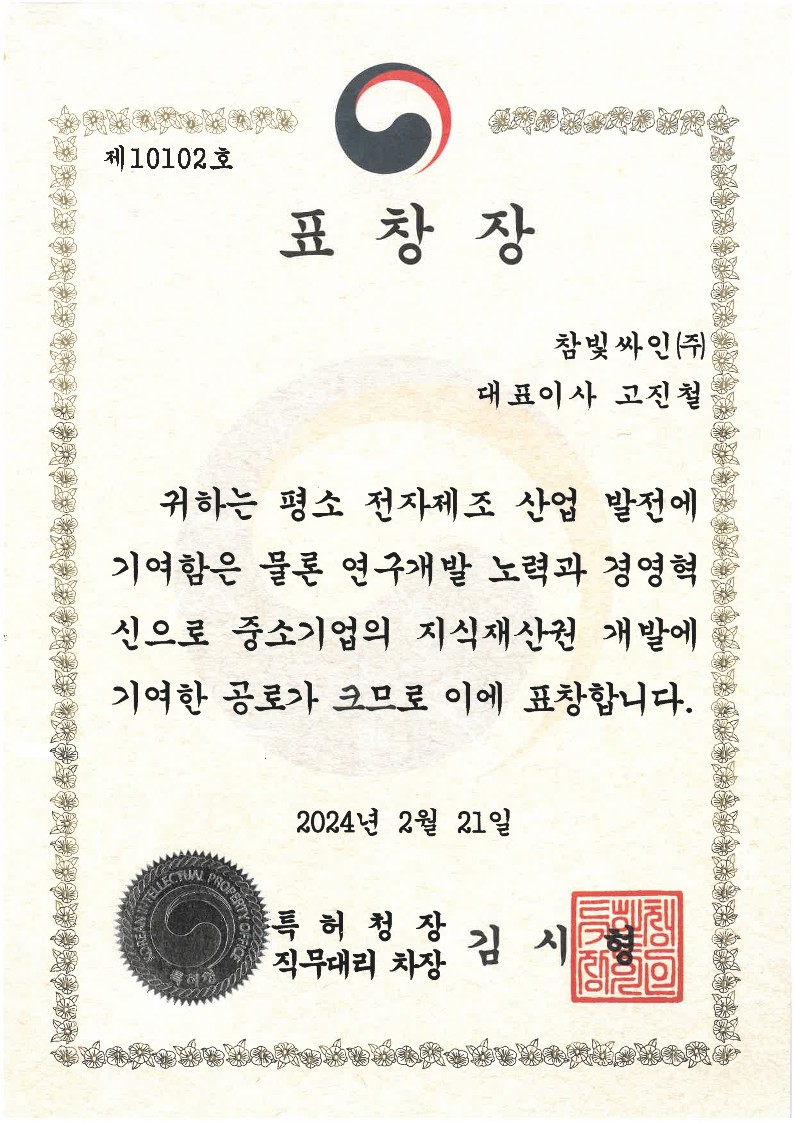 제10102호
표 창 장
참빛싸인(주)
대표이사 고진철
귀하는 평소 전자제조 산업 발전에
기여함은 물론 연구개발 노력과 경영혁
신으로 중소기업의 지식재산권 개발에
기여한 공로가 크므로 이에 표창합니다.
2024년 2월 21일
KOREAN INTELLECTUAL PROPERTY OFFICE
특허청
특 허 청 장
직무대리 차장
김 시 형